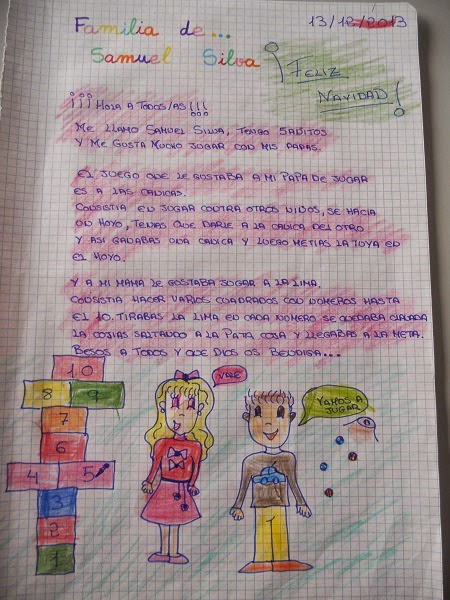 Familia de...
Samuel Silva
13/12/2013
¡FELIZ
NAVIDAD!
¡¡¡HOLA A TODOS/AS!!!
ME LLAMO SAMUEL SILVA, TENGO 5 AÑITOS
Y ME GUSTA MUCHO JUGAR CON MIS PAPAS.
EL JUEGO QUE LE GUSTABA A MI PAPA DE JUGAR
ES A LAS CANICAS.
CONSISTIA EN JUGAR CONTRA OTROS NIÑOS, SE HACIA
UN HOYO, TENIAS QUE DARLE A LA CANICA DEL OTRO
Y ASI GANABAS UNA CANICA Y LUEGO METIAS LA TUYA EN
EL HOYO.
Y A MI MAMA LE GUSTABA JUGAR A LA LIMA.
CONSISTIA HACER VARIOS CUADRADOS CON NUMEROS HASTA
EL 10. TIRABAS LA LIMA EN CADA NUMERO SE QUEDABA CLAVADA
LA COJIAS SALTANDO A LA PATA COJA Y LLEGABAS A LA META.
BESOS A TODOS Y QUE DIOS OS BENDIGA...
VALE
VAMOS A
JUGAR
10
8 9
7
6
4 5
3
2
1